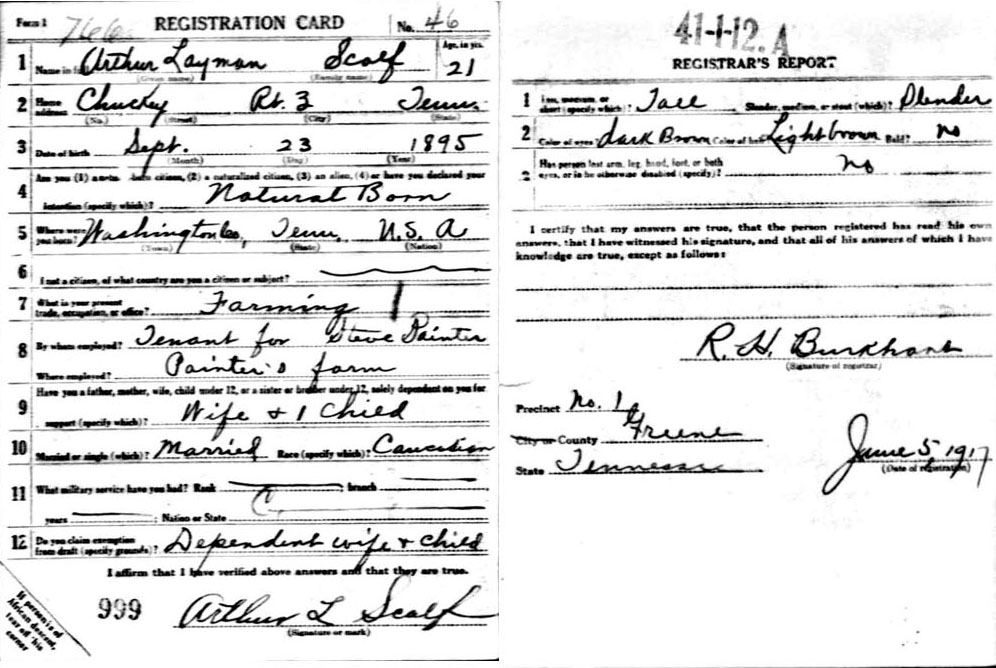 Form 1 766 REGISTRATION CARD No. 46
1 Name in full Arthur Layman Scalf Age, in yrs. 21
(Given name) (Family name)
2 Home address Chuckey Rt. 3 Tenn.
(No.) (Street) (City) (State)
3 Date of birth Sept. 23 1895
(Month) (Day) (Year)
4 Are you (1) a natural-born citizen, (2) a naturalized citizen, (3) an alien, (4) or have you declared your
intention (specify which)? Natural Born
5 Where were you born? Washington Co, Tenn. U.S.A
(Town) (State) (Nation)
6 I not a citizen, of what country are you a citizen or subject?
7 What is your present trade, occupation, or office? Farming 1
8 By whom employed? Tenant for Steve Painter
Where employed? Painter's farm
9 Have you a father, mother, wife, child under 12, or a sister or brother under 12, solely dependent on you for
support (specify which)? Wife + 1 Child
10 Married or single (which)? Married Race (specify which)? Caucasian
11 What military service have you had? Rank ; branch
years ; Nation or State
12 Do you claim exemption from draft (specify grounds)? Dependent wife + child
I affirm that I have verified above answers and that they are true.
999
Arthur L Scalf
(Signature or mark)
If person is of
African descent,
tear off this
corner
41-1-12. A
REGISTRAR'S REPORT
1 Tall, medium, or short (specify which)? Tall Slender, medium, or stout (which)? Slender
2 Color of eyes? dark Brown Color of hair? Light brown Bald? no
3 Has person lost arm, leg, hand, foot, or both
eyes, or is he otherwise disabled (specify)? no
I certify that my answers are true, that the person registered has read his own
answers, that I have witnessed his signature, and that all of his answers of which I have
knowledge are true, except as follows:
R. H. Burkhart
(Signature of registrar)
Precinct No. 1
City or County Greene
State Tennessee
June 5, 1917
(Date of registration)